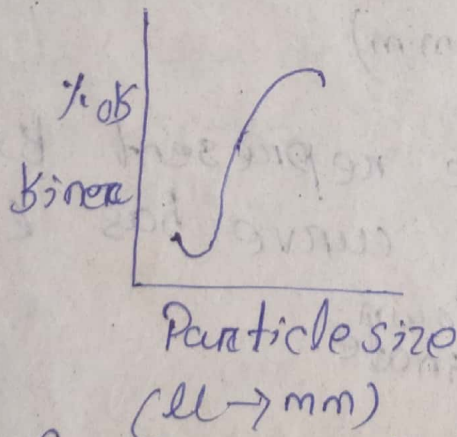 % of
finer
Particle size
(μ → mm)